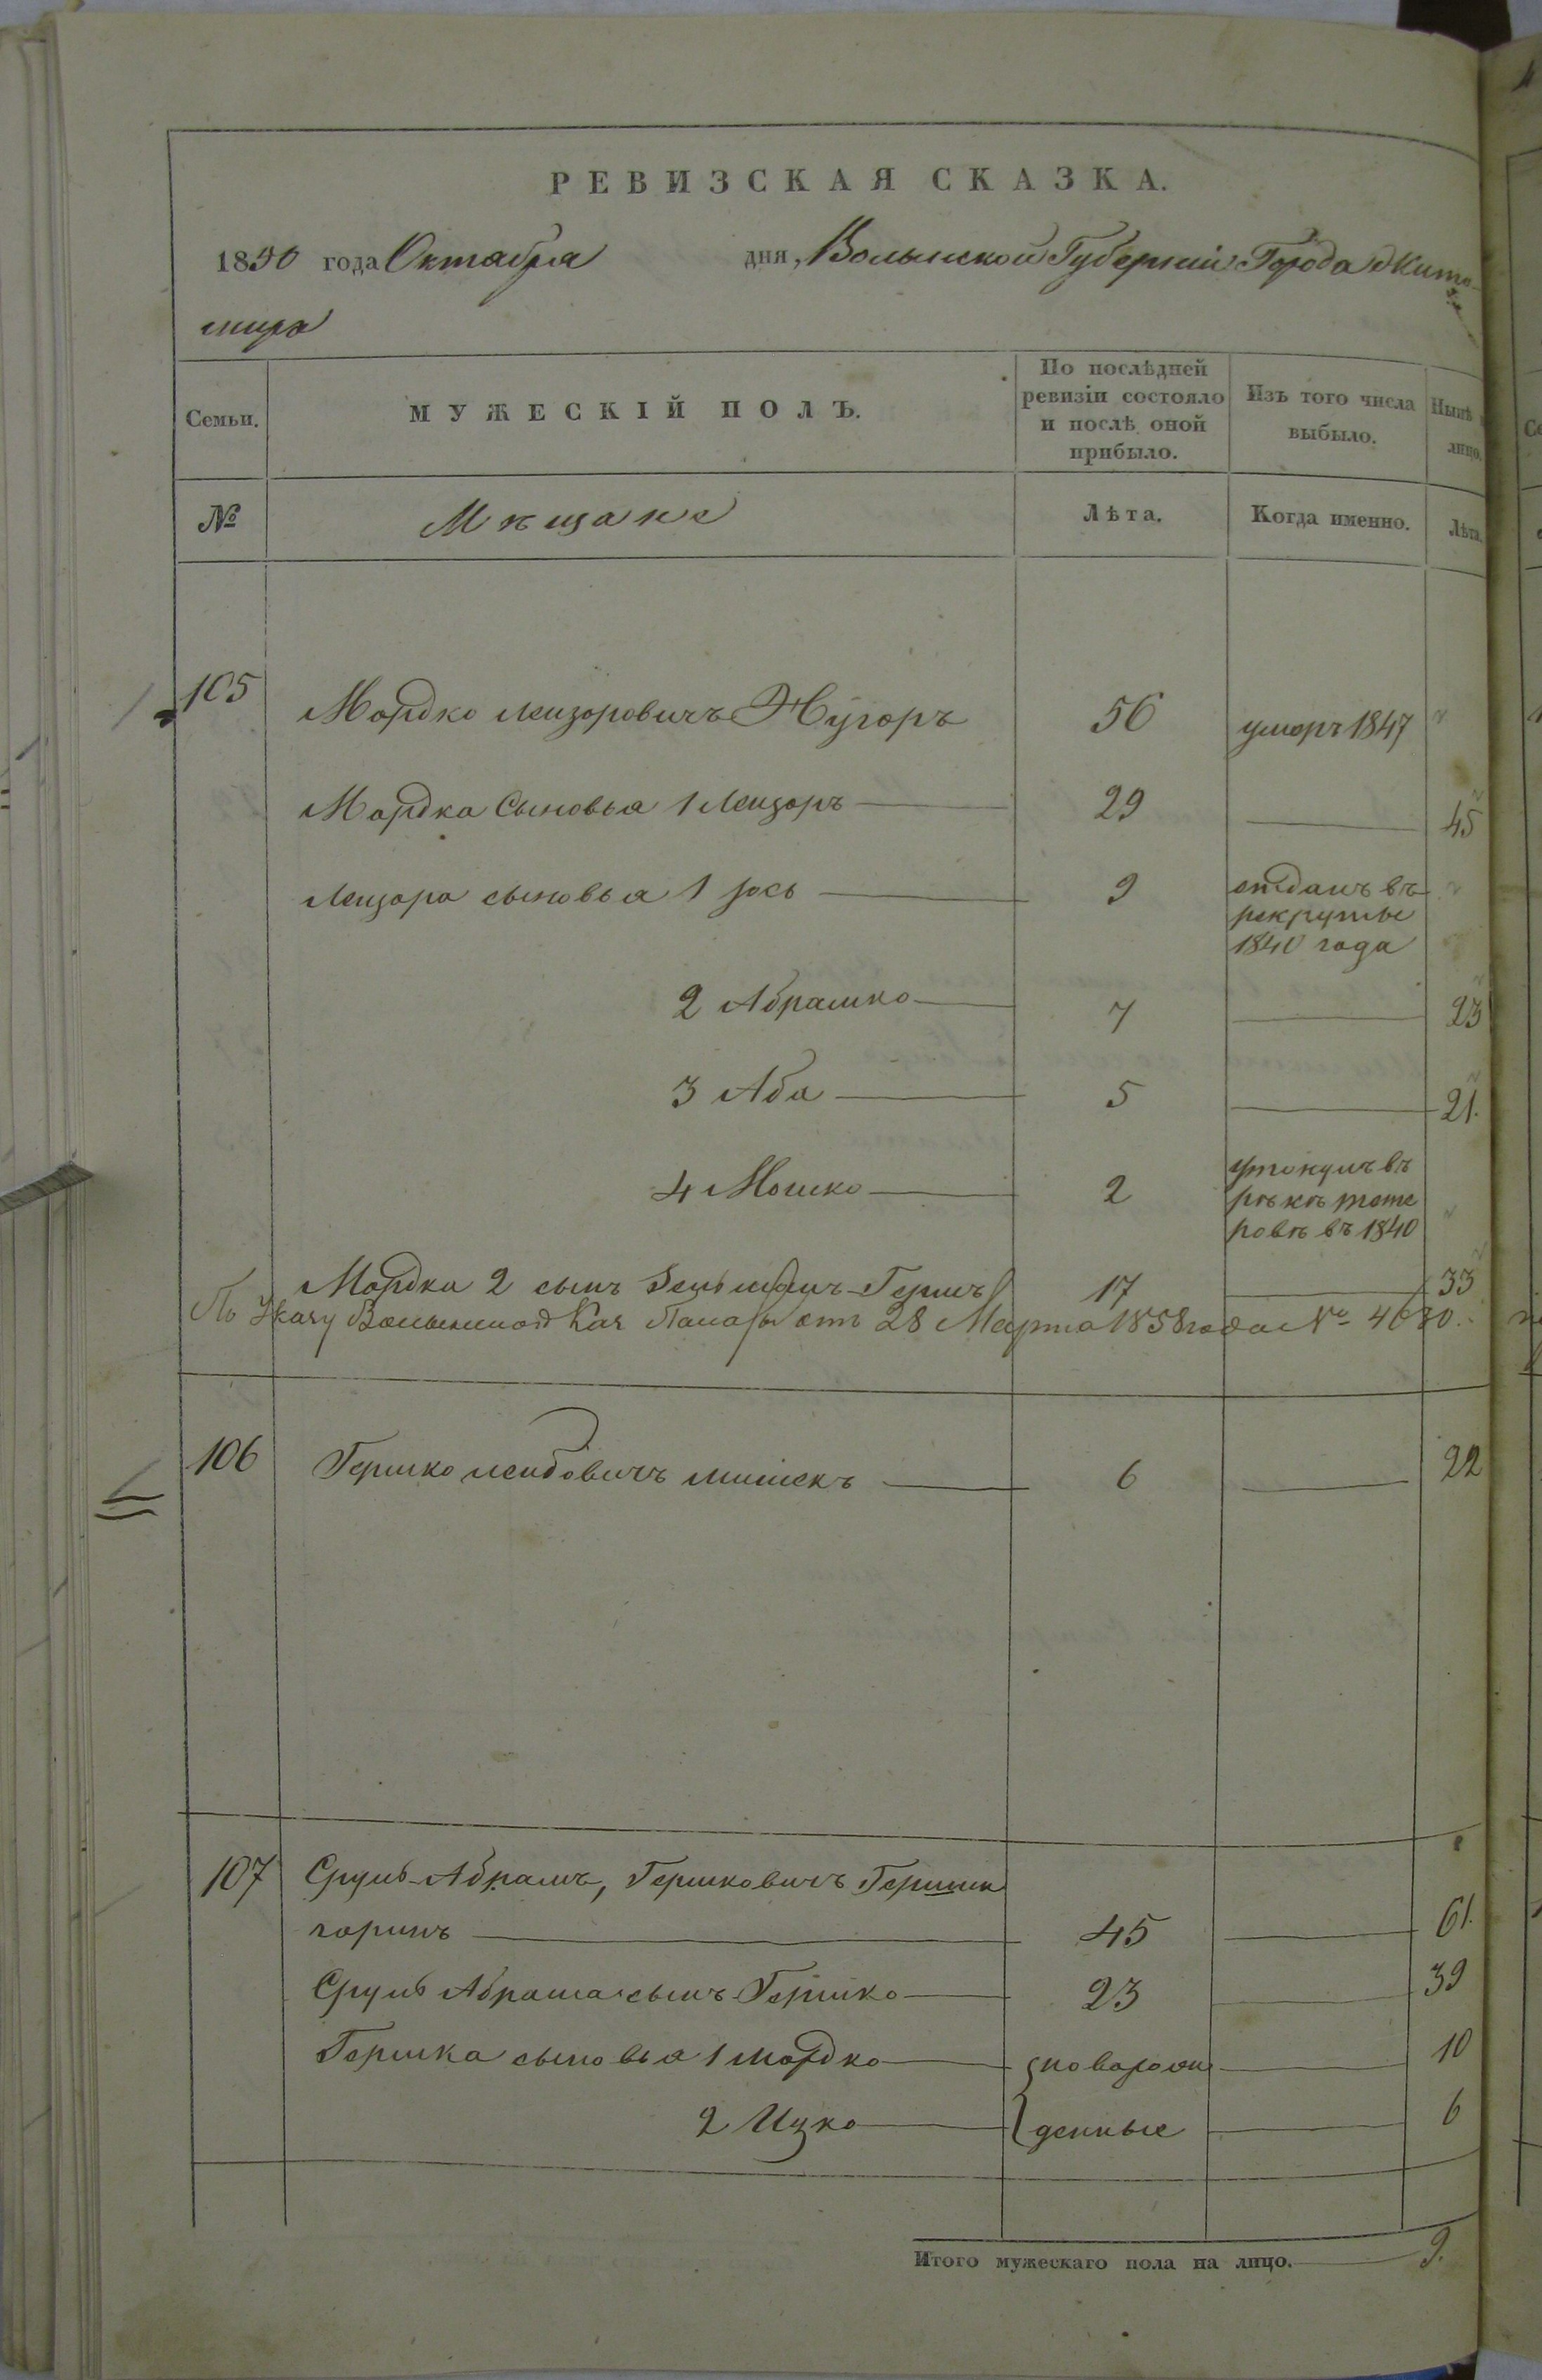 РЕВИЗСКАЯ СКАЗКА.
1850 года Октября дня, Волынской Губерніи Города Жито-
мира
Семьи. МУЖЕСКІЙ ПОЛЪ. По послѣдней ревизіи состояло и послѣ оной прибыло. Изъ того числа выбыло. Нынѣ лицо.
№ Мѣщане Лѣта. Когда именно. Лѣта.
105 Мордко Лейзоровичъ 56 умеръ 1847
Мордка Сыновья 1 Лейзоръ 29 45
Лейзора сыновья 1 Іось 9 отданъ въ
рекруты
1840 года
2 Абрашко 7 23
3 Аба 5 21.
4 Мошко 2 утонулъ въ
рѣкѣ Тете
ровѣ въ 1840
Мордка 2 сынъ Зельманъ-Гершъ 17 33
По Указу Волынской Каз Палаты отъ 28 Марта 1858 года № 4630.
106 Гершко Лейбовичъ 6 22
107 Сруль-Абрамъ, Гершковичъ
горинъ 45 61.
Сруль Абрама сынъ Гершко 23 39
Гершка сыновья 1 Мордко новорож 10
2 Ицко денные 6
Итого мужескаго пола на лицо. 9.